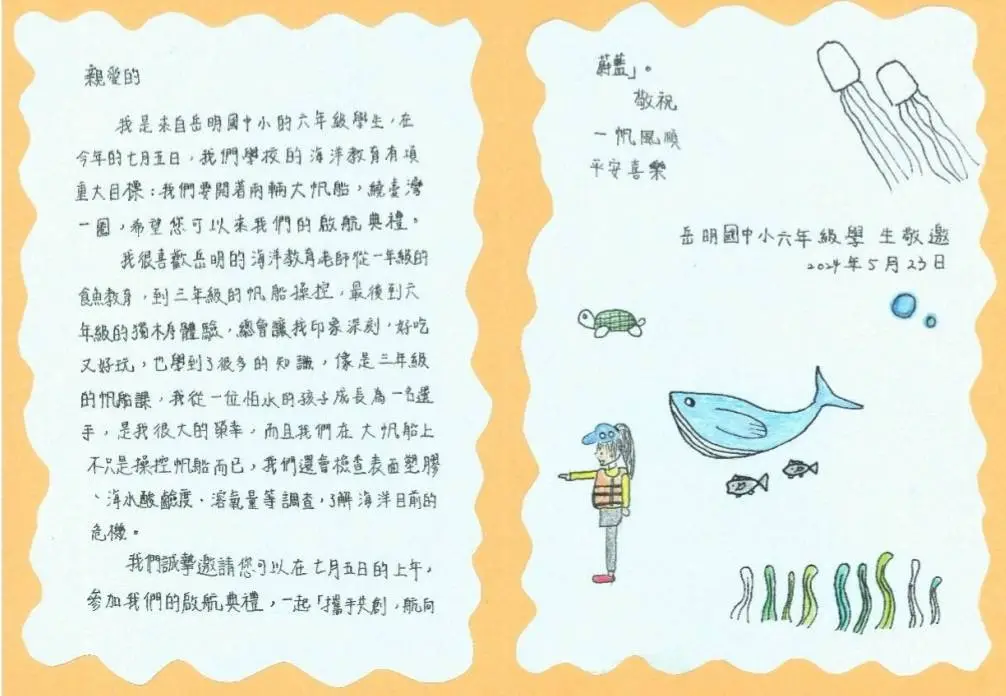 親愛的
我是來自岳明國中小的六年級學生，在
今年的七月五日，我們學校的海洋教育有項
重大目標：我們要開著兩輛大帆船，繞臺灣
一圈，希望您可以來我們的啟航典禮。
我很喜歡岳明的海洋教育老師從一年級的
食魚教育，到三年級的帆船操控，最後到六
年級的獨木舟體驗，總會讓我印象深刻，好吃
又好玩，也學到了很多的知識，像是三年級
的帆船課，我從一位怕水的孩子成長為一名選
手，是我很大的榮幸，而且我們在大帆船上
不只是操控帆船而已，我們還會檢查表面塑膠
、海水酸鹼度、溶氧量等調查，了解海洋目前的
危機。
我們誠摯邀請您可以在七月五日的上午，
參加我們的啟航典禮，一起「攜手共創，航向
蔚藍」。
敬祝
一帆風順
平安喜樂
岳明國中小六年級學生敬邀
2024年5月23日